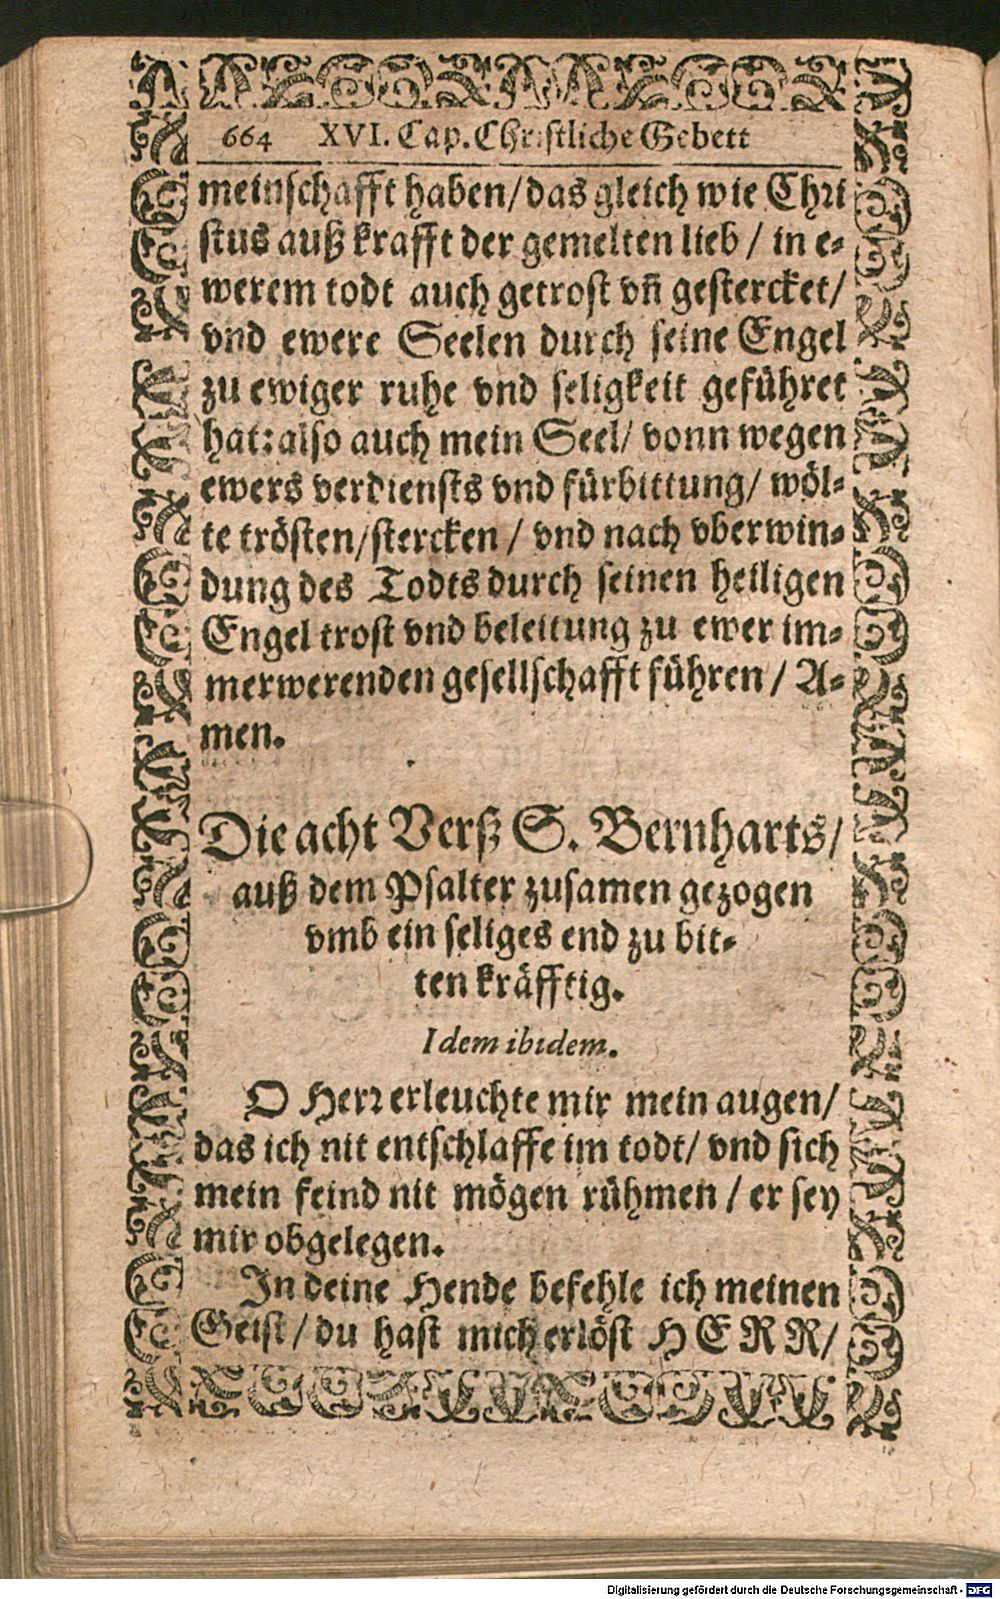 664 XVI. Cap. Christliche Gebett
meinschafft haben/ das gleich wie Chri
stus auß krafft der gemelten lieb / in e-
werem todt auch getrost vñ gestercket/
vnd ewere Seelen durch seine Engel
zu ewiger ruhe vnd seligkeit geführet
hat: also auch mein Seel/ vonn wegen
ewers verdiensts vnd fürbittung/ wöl-
te trösten/ stercken / vnd nach vberwin-
dung des Todts durch seinen heiligen
Engel trost vnd beleitung zu ewer im-
merwerenden gesellschafft führen / A-
men.
Die acht Verß S. Bernharts/
auß dem Psalter zusamen gezogen
vmb ein seliges end zu bit-
ten kräfftig.
Idem ibidem.
O Herr erleuchte mir mein augen/
das ich nit entschlaffe im todt/ vnd sich
mein feind nit mögen rühmen / er sey
mir obgelegen.
In deine Hende befehle ich meinen
Geist/ du hast mich erlöst HERR/
Digitalisierung gefördert durch die Deutsche Forschungsgemeinschaft - DFG